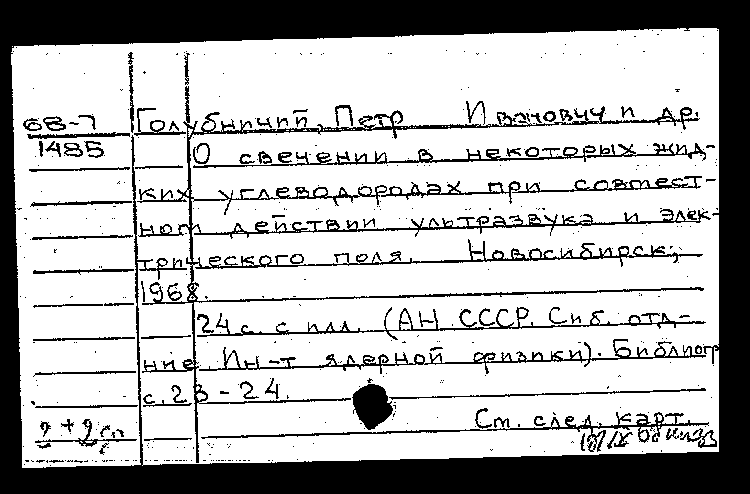 68-7 Голубничий, Петр Иванович и др.
1485 О свечении в некоторых жид-
ких углеводородах при совмест-
ном действии ультразвука и элек-
трического поля. Новосибирск,
1968.
24 с. с илл. (АН СССР. Сиб. отд-
ние Ин-т ядерной физики). Библиогр
с. 23-24.
См. след. карт.
2 + 2